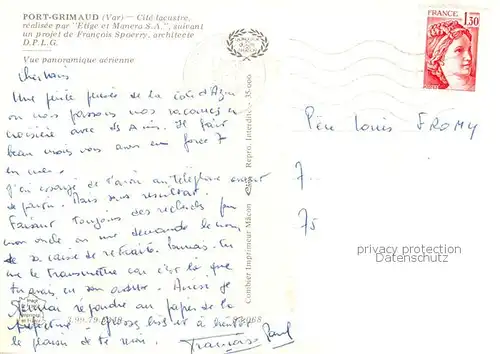 PORT-GRIMAUD (Var) — Cité lacustre,
réalisée par "Etige et Manera S.A.", suivant
un projet de François Spoerry, architecte
D.P.L.G.
Vue panoramique aérienne
FRANCE
1,30
Cher Louis
Une petite pensée de la Côte d'Azur
où nous passons nos vacances en
croisière avec des amis. Il fait
beau mais vous avons eu force 7
en mer.
J'ai essayé de t'avoir au téléphone avant
de partir. Mais sans résultat.
Faisant toujours des recherches pour
mon oncle on me demande le nom
de sa caisse de retraite. Peux-tu
me le transmettre car c'est là que
tu avais eu son adresse. Ainsi je
répondre au papier de la
préfecture. Gross bise et à bientôt
le plaisir de te voir. Françoise Paul
Père Louis FROMY
7...
75
privacy protection
Datenschutz
Combier Imprimeur Mâcon
Repro. Interdite
35-000